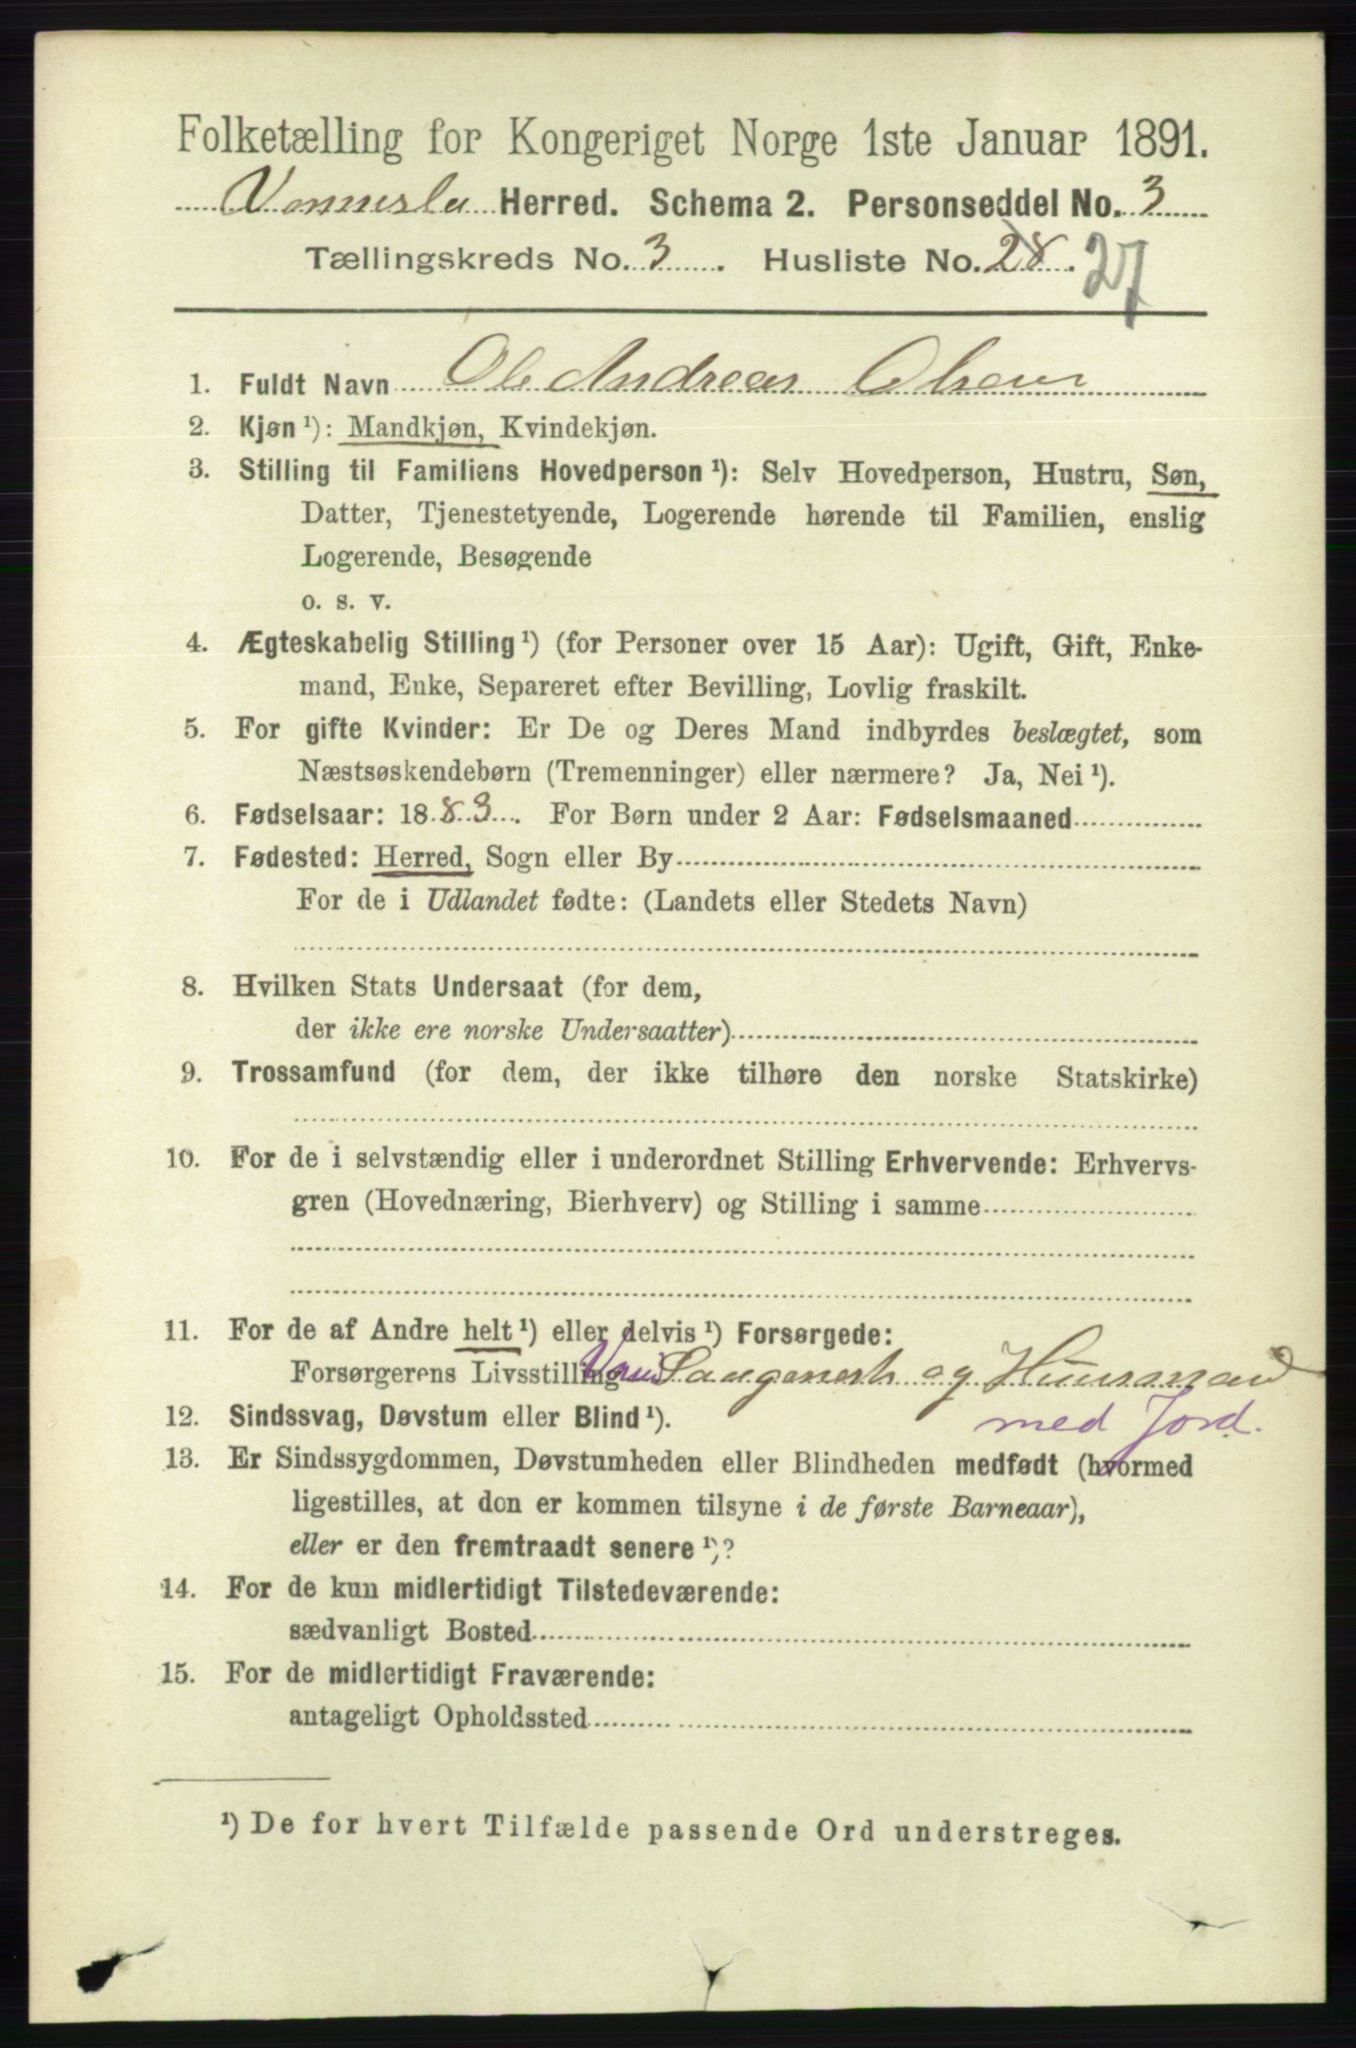 Folketælling for Kongeriget Norge 1ste Januar 1891.
Vennesla Herred. Schema 2. Personseddel No. 3
Tællingskreds No. 3. Husliste No. 28. 27
1. Fuldt Navn Ole Andreas Olsen
2. Kjøn ¹): Mandkjøn, Kvindekjøn.
3. Stilling til Familiens Hovedperson ¹): Selv Hovedperson, Hustru, Søn,
Datter, Tjenestetyende, Logerende hørende til Familien, enslig
Logerende, Besøgende
o. s. v.
4. Ægteskabelig Stilling ¹) (for Personer over 15 Aar): Ugift, Gift, Enke-
mand, Enke, Separeret efter Bevilling, Lovlig fraskilt.
5. For gifte Kvinder: Er De og Deres Mand indbyrdes beslægtet, som
Næstsøskendebørn (Tremenninger) eller nærmere? Ja, Nei ¹).
6. Fødselsaar: 1883. For Børn under 2 Aar: Fødselsmaaned
7. Fødested: Herred, Sogn eller By
For de i Udlandet fødte: (Landets eller Stedets Navn)
8. Hvilken Stats Undersaat (for dem,
der ikke ere norske Undersaatter)
9. Trossamfund (for dem, der ikke tilhøre den norske Statskirke)
10. For de i selvstændig eller i underordnet Stilling Erhvervende: Erhvervs-
gren (Hovednæring, Bierhverv) og Stilling i samme
11. For de af Andre helt ¹) eller delvis ¹) Forsørgede:
Forsørgerens Livsstilling og Huusmand
med Jord.
12. Sindssvag, Døvstum eller Blind ¹).
13. Er Sindssygdommen, Døvstumheden eller Blindheden medfødt (hvormed
ligestilles, at den er kommen tilsyne i de første Barneaar),
eller er den fremtraadt senere ¹)?
14. For de kun midlertidigt Tilstedeværende:
sædvanligt Bosted
15. For de midlertidigt Fraværende:
antageligt Opholdssted
¹) De for hvert Tilfælde passende Ord understreges.